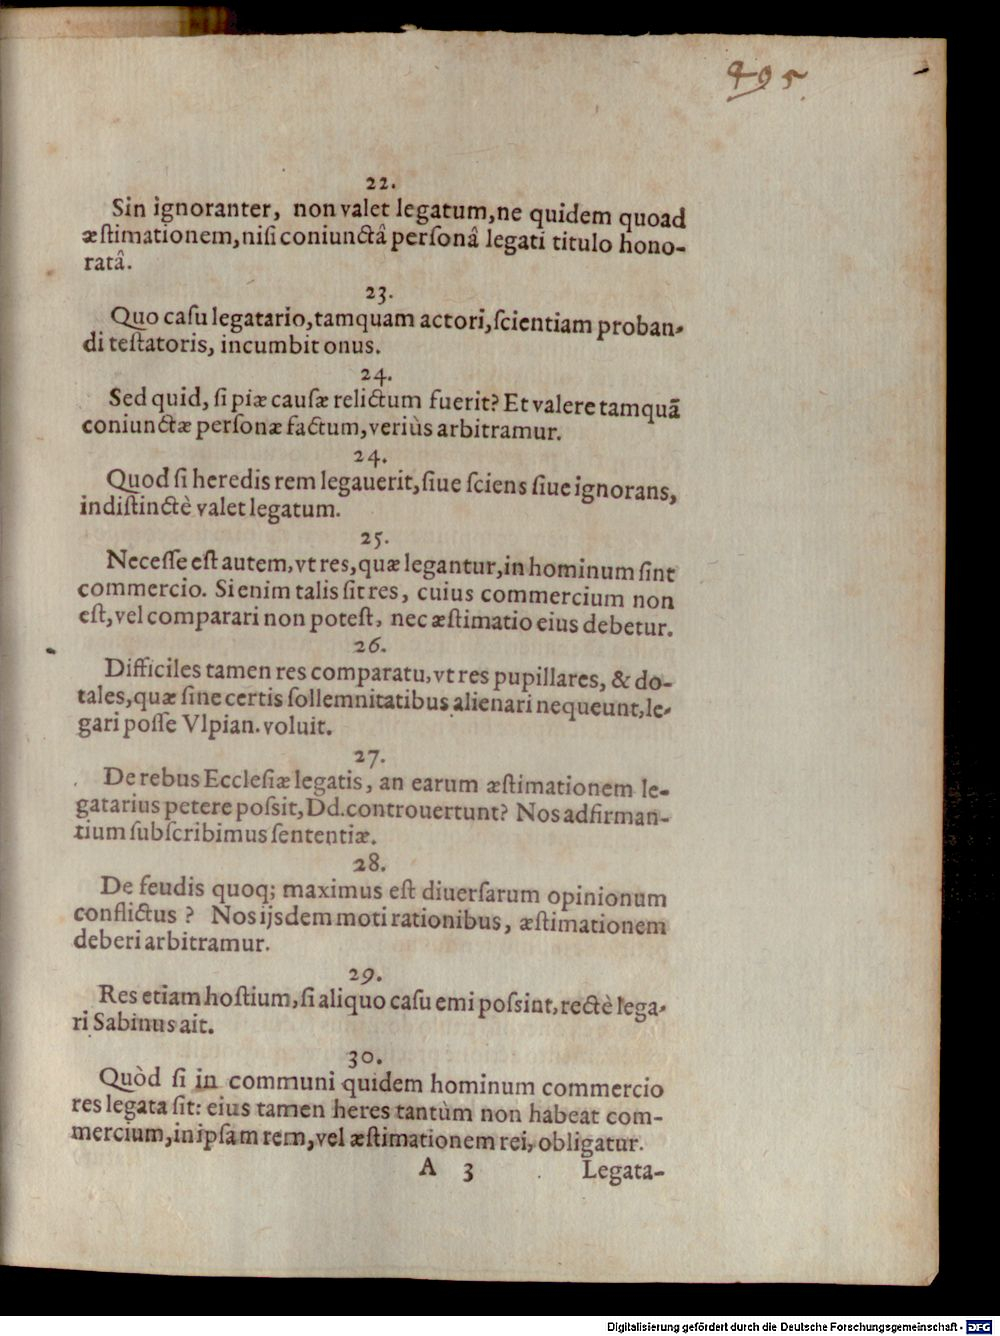 495
22.
Sin ignoranter, non valet legatum, ne quidem quoad
æſtimationem, niſi coniunctâ perſonâ legati titulo hono-
ratâ.
23.
Quo caſu legatario, tamquam actori, ſcientiam proban-
di teſtatoris, incumbit onus.
24.
Sed quid, ſi piæ cauſæ relictum fuerit? Et valere tamquã
coniunctæ perſonæ factum, veriùs arbitramur.
24.
Quod ſi heredis rem legauerit, ſiue ſciens ſiue ignorans,
indiſtinctè valet legatum.
25.
Neceſſe eſt autem, vt res, quæ legantur, in hominum ſint
commercio. Si enim talis ſit res, cuius commercium non
eſt, vel comparari non poteſt, nec æſtimatio eius debetur.
26.
Difficiles tamen res comparatu, vt res pupillares, & do-
tales, quæ ſine certis ſollemnitatibus alienari nequeunt, le-
gari poſſe Vlpian. voluit.
27.
De rebus Eccleſiæ legatis, an earum æſtimationem le-
gatarius petere poſsit, Dd. controuertunt? Nos adfirman-
tium ſubſcribimus ſententiæ.
28.
De feudis quoq; maximus eſt diuerſarum opinionum
conflictus? Nos ijsdem moti rationibus, æſtimationem
deberi arbitramur.
29.
Res etiam hoſtium, ſi aliquo caſu emi poſsint, rectè lega-
ri Sabinus ait.
30.
Quòd ſi in communi quidem hominum commercio
res legata ſit: eius tamen heres tantùm non habeat com-
mercium, in ipſam rem, vel æſtimationem rei, obligatur.
A 3 Legata-
Digitalisierung gefördert durch die Deutsche Forschungsgemeinschaft - DFG